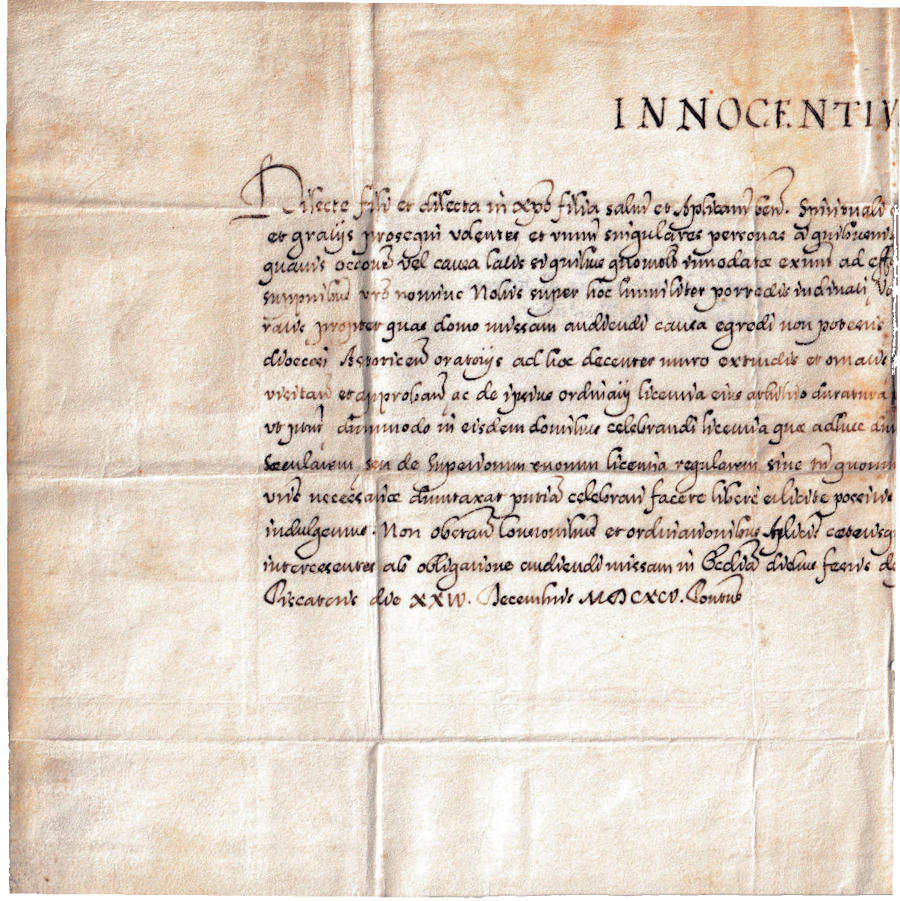 INNOCENTIV
Dilecte fili et dilecta in xpõ filia salut̃ et Aplicam̃ ben̄. Spirituali
et gratijs prosequi volentes et vr̃um singulares personas a quibusvis
quavis occone vel causa latis si quibus quomolt innodatæ exunt ad eff
supp̃nibus vrõ nomine Nobis super hoc humiliter porrectis inclinati, Vo
propter quas domo missam audiendi causa egredi non potestis
diœcesi Astoricen̄ oratorijs ad hoc decenter muro extructis et ornatis
visitan̄ et approban̄ ac de ipsius ordinarij licentia eius arbitrio duratura
vt p̃fertur dummodo in eisdem domibus celebrandi licentia quæ adhuc dur
Sæcularem seu de Superiorum suorum licentia regularem sine tñ quorum
vris necessariæ dumtaxat p̃ntia celebrari facere libere et licite possitis
indulgemus. Non obstan̄ Constõnibus et ordinationibus Aplicis cæterisq
interessentes ab obligatione audiendi missam in Ecclia diebus festis
Piscatoris die XXIV. Decembris MDCXCV. Pontus